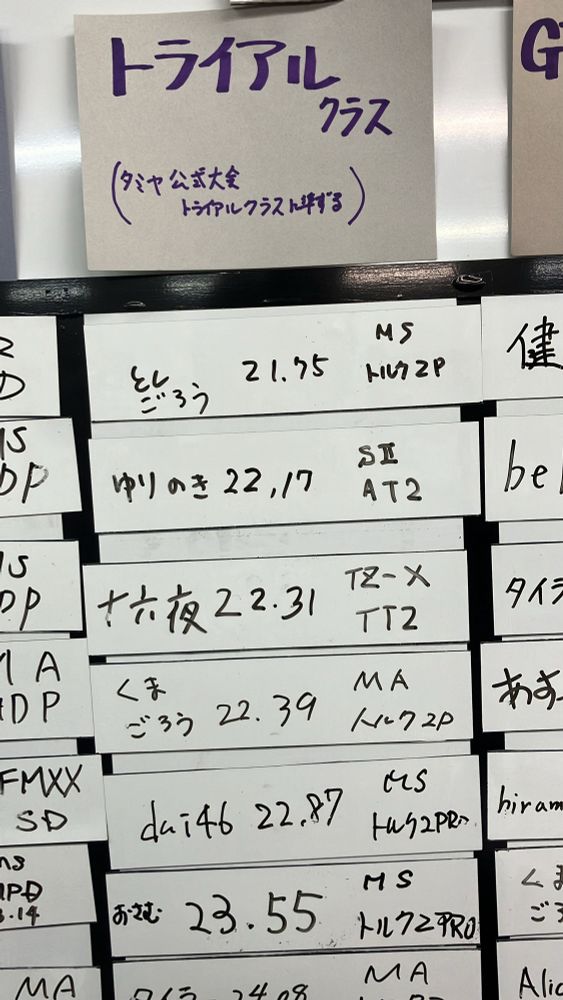 トライアル
クラス
(タミヤ公式大会
トライアルクラスに準ずる)
G
とし
ごろう 21.75 MS
トルク2P
ゆりのき 22,17 SII
AT2
十六夜 22.31 TZ-X
TT2
くま
ごろう 22.39 MA
トルク2P
dai46 22.87 MS
トルク2PRO
おさむ 23.55 MS
トルク2PRO
タイラ 24.08 MA
D
MS
DP
MS
DP
MA
HDP
FMXX
SD
ms
MA
健
be
タイラ
あす
hiram
くま
ごろ
Alic